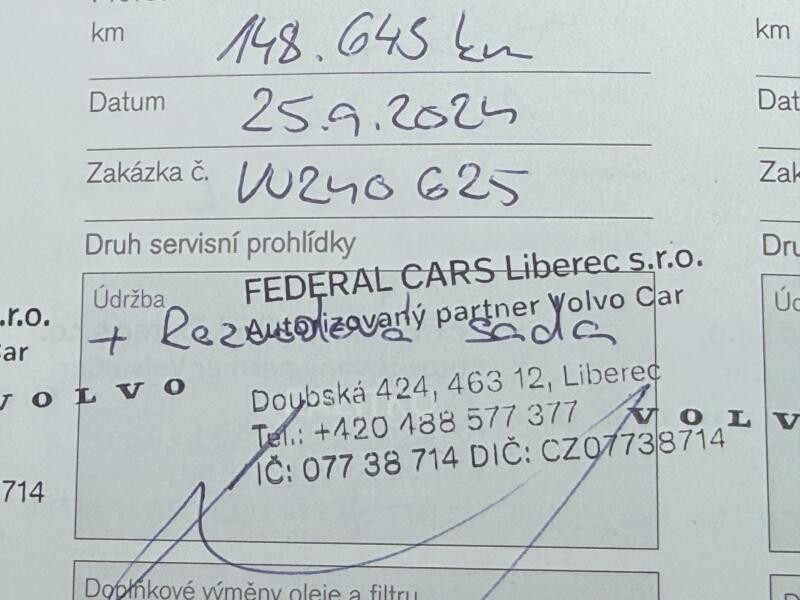 km 148.645 km km
Datum 25.9.2024 Dat
Zakázka č. W240625 Zak
Druh servisní prohlídky
Údržba
FEDERAL CARS Liberec s.r.o.
Autorizovaný partner Volvo Car
+ Rozvodová sada
.r.o.
ar
VOLVO
Doubská 424, 463 12, Liberec
Tel.: +420 488 577 377
VOLV
IČ: 077 38 714 DIČ: CZ07738714
714
Doplňkové výměny oleje a filtru